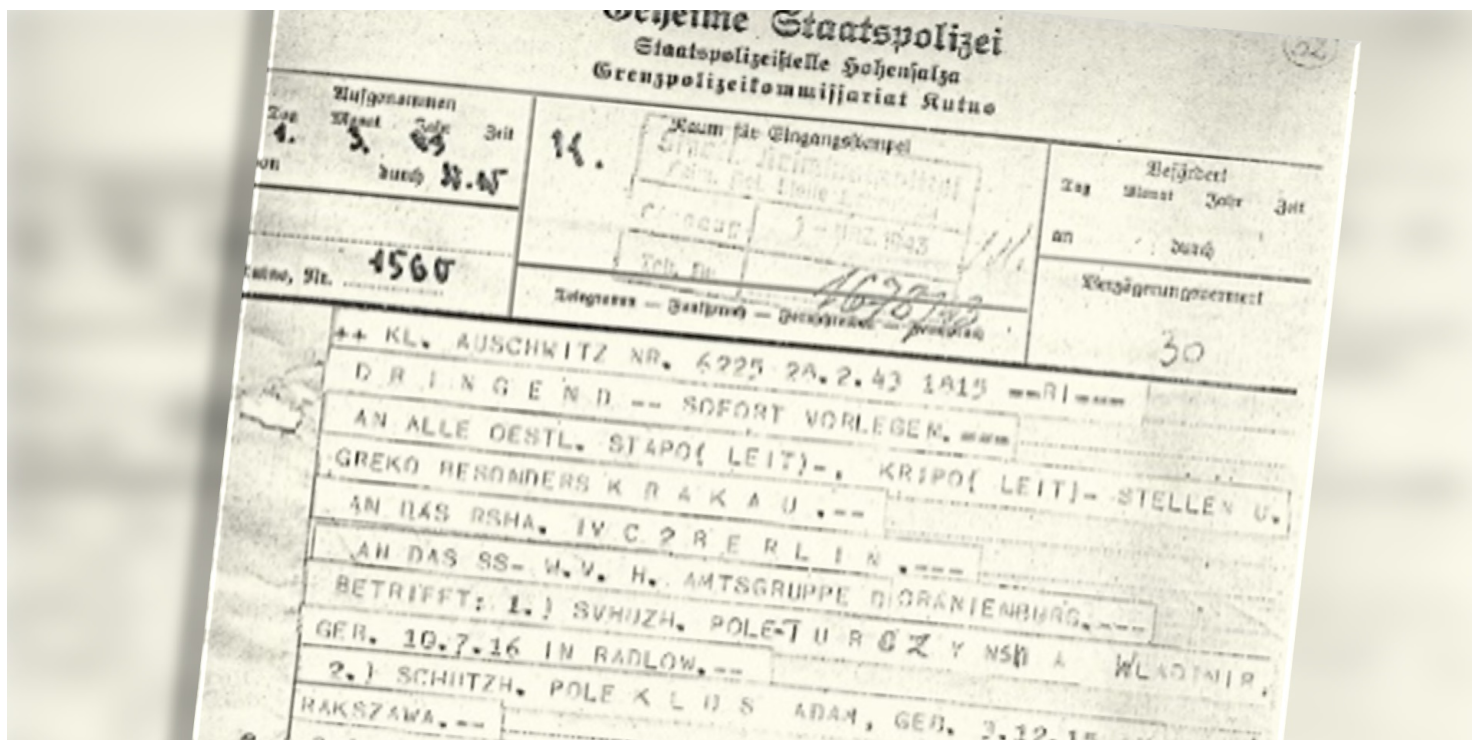 Geheime Staatspolizei
Staatspolizeistelle Hohensalza
Grenzpolizeikommissariat Kutno
Aufgenommen
Tag Monat Jahr Zeit
1. 3. 43
durch
14.
Raum für Eingangsstempel
Befördert
Tag Monat Jahr Zeit
an durch
Verzögerungsvermerk
30
Nr. 1560
++ KL. AUSCHWITZ NR. 6225 28.2.43 1815 ==RI===
D R I N G E N D -- SOFORT VORLEGEN.===
AN ALLE OESTL. STAPO( LEIT)-, KRIPO( LEIT)- STELLEN U.
GREKO BESONDERS K R A K A U .--
AN DAS RSHA. IV C 2 B E R L I N .---
AN DAS SS- W.V. H. AMTSGRUPPE D ORANIENBURG.---
BETRIFFT: 1.) SVHUZH. POLE-T U R C Z Y NSK A WLADIMIR,
GEB. 10.7.16 IN RADLOW.--
2.) SCHUTZH. POLE K L U S ADAM, GEB.
RAKSZAWA.--